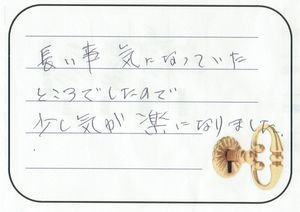 長い事 気になっていた
ところでしたので
少し気が 楽になりました.